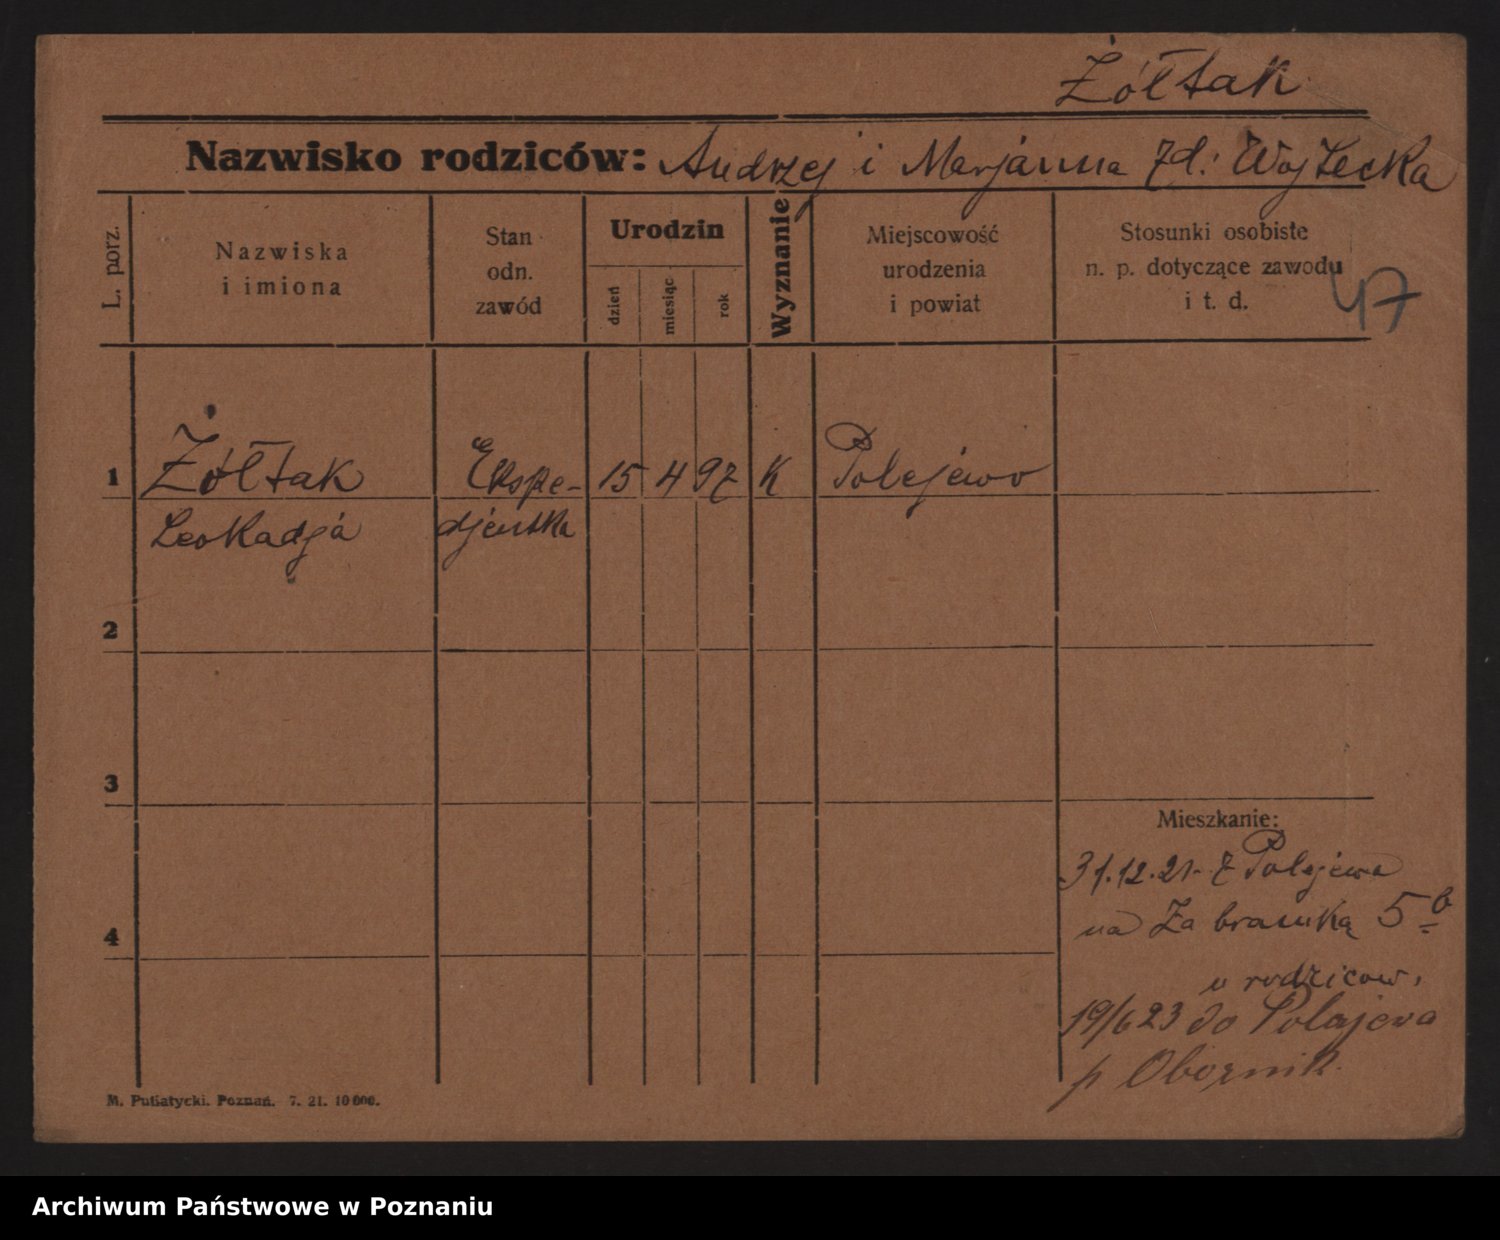 Żółtak
Nazwisko rodziców: Andrzej i Marjanna zd: Wojtecka
L. porz.
Nazwiska
i imiona
Stan
odn.
zawód
Urodzin
dzień
miesiąc
rok
Wyznanie
Miejscowość
urodzenia
i powiat
Stosunki osobiste
n. p. dotyczące zawodu
i t. d.
47
1 Żółtak Ekspe- 15 4 97 K Polejewo
Leokadja djentka
2
3
4
Mieszkanie:
31.12.21. z Polejewa
na Za bramką 5 b
u rodzicow.
19/6 23 do Polajewa
p Obornik.
M. Putiatycki. Poznań. 7. 21. 10000.
Archiwum Państwowe w Poznaniu